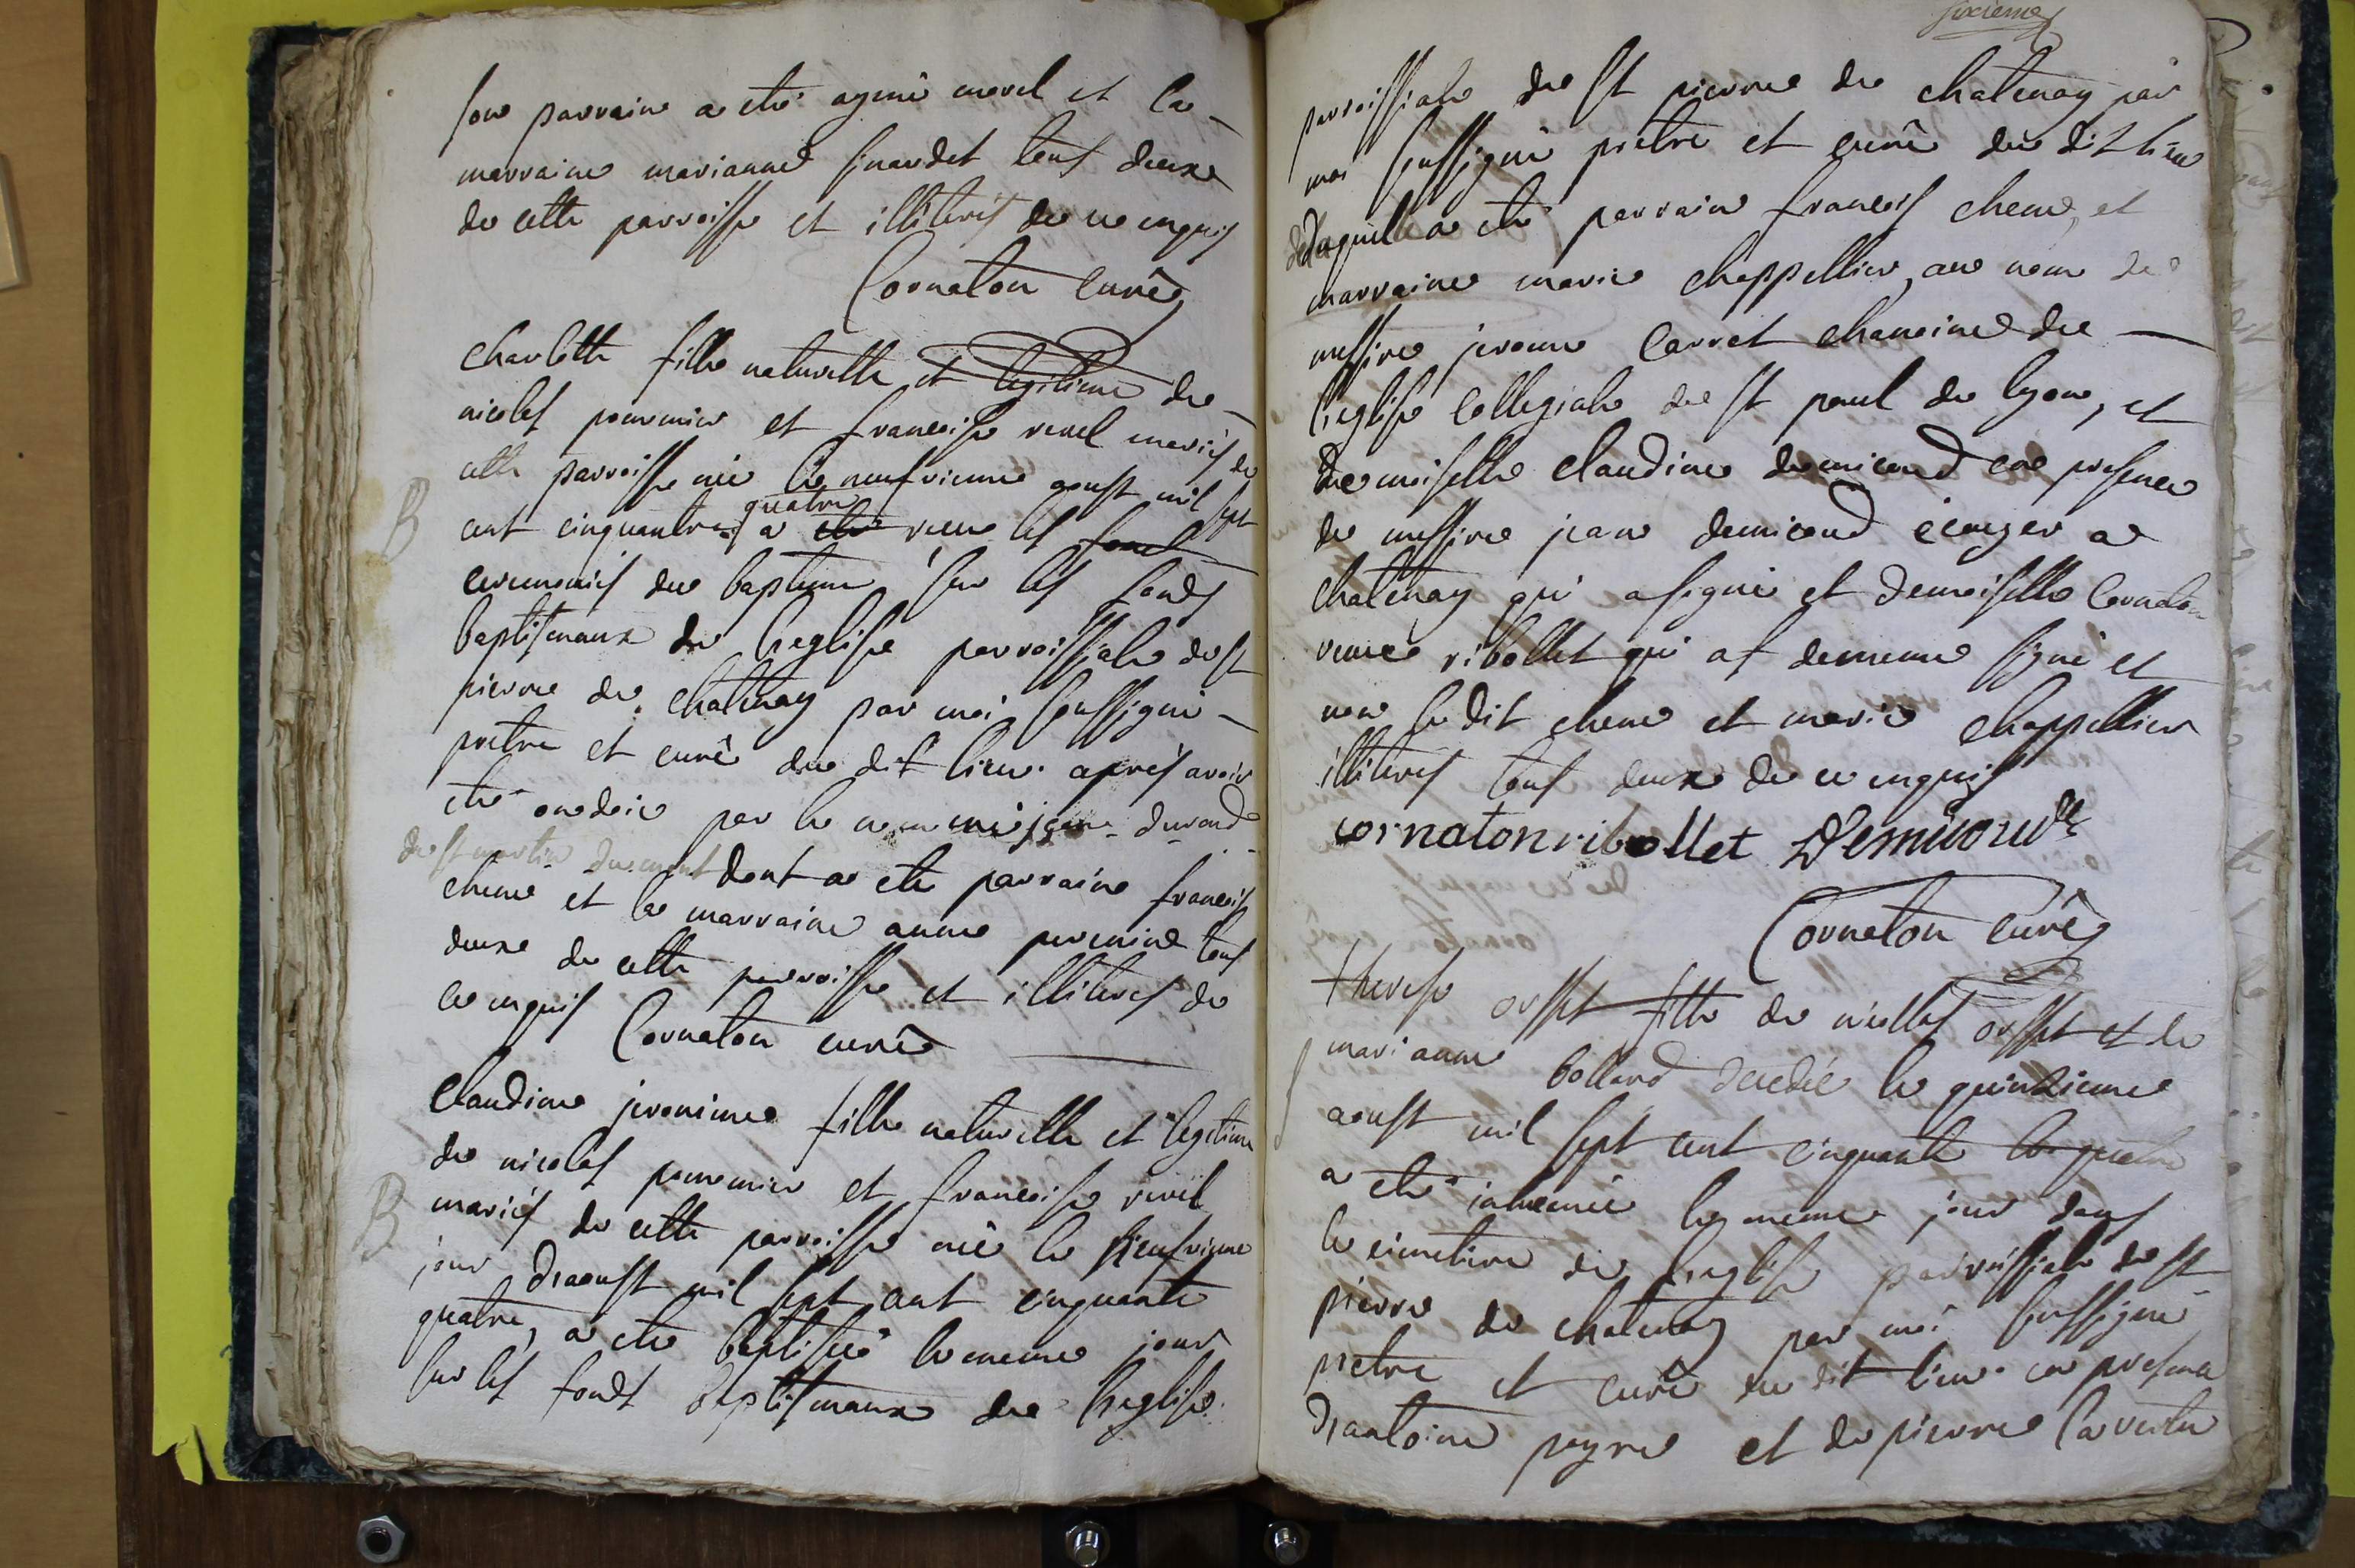 son parrain a ete aymé morel et la
marraine marianne guardet tous deux
de cette parroisse et illiterés de ce enquis
Cornaton curé
charlotte fille naturelle et legitime de
nicolas pommier et francoise revel mariés de
cette parroisse née le neufvieme aoust mil sept
quatre
cent cinquante a eté receu les fond
ceremonies du bapteme sur les fonds
baptismaux de l'eglise parroissiale de st
pierre de chatenay par moi soussigné
pretre et curé du dit lieu aprés avoir
eté ondoié par la nommée durand
de st martin du mont dont a eté parrain francois
chene et la marraine anne tous
deux de cette parroisse et illiteres de
ce enquis Cornaton curé
B
claudine jeronime fille naturelle et legitime
de nicolas pommier et francoise revel
mariés de cette parroisse née le neufvieme
jour d'aoust mil sept cent cinquante
quatre, a eté baptisée le meme jour
sur les fonds baptismaux de l'eglise
B
sixieme
parroissiale de st pierre de chatenay par
moi soussigné pretre et curé du dit lieu
duquel a eté parrain francois chene, et
marraine marie chappellier, au nom de
messire jerome carret chanoine de
l'eglise collegiale de st paul de lyon, et
demoiselle claudine demicoud en presence
de messire jean demicoud ecuyer a
chatenay qui a signé et demoiselle Cornaton
veuve ribollet qui as dememe signé et
non le dit chene et marie chappellier
illiterés tous deux de ce enquis
cornaton ribollet Demicoud
Cornaton curé
therese orsset fille de nicollas orsset et de
marianne bollard decedée le quinzieme
aoust mil sept cent cinquante le quatre
a eté inhumée le meme jour dans
le cimetiere de l'eglise parroissiale de st
pierre de chatenay par moi soussigné
pretre et curé du dit lieu en presence
d'antoine peyre et de pierre laverlu